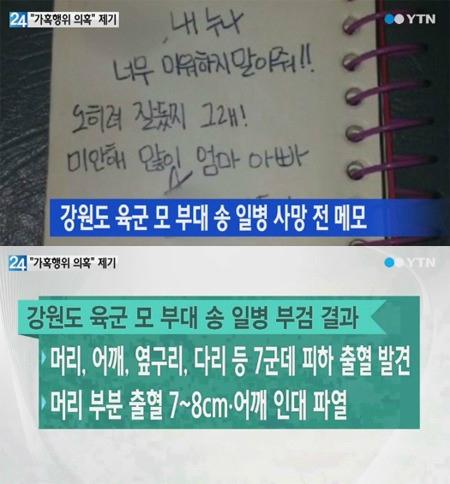 24 "가혹행위 의혹" 제기
YTN
내 누나
너무 미워하지말아줘!!
오히려 잘됐지 그래!
미안해 많이 엄마 아빠
강원도 육군 모 부대 송 일병 사망 전 메모
24 "가혹행위 의혹" 제기
YTN
강원도 육군 모 부대 송 일병 부검 결과
▸머리, 어깨, 옆구리, 다리 등 7군데 피하 출혈 발견
▸머리 부분 출혈 7~8cm·어깨 인대 파열